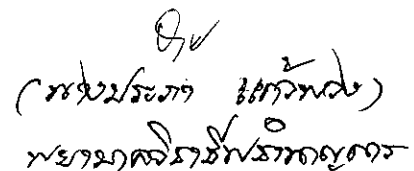 (นางประภา แก้วพวง)
พยาบาลวิชาชีพชำนาญการ